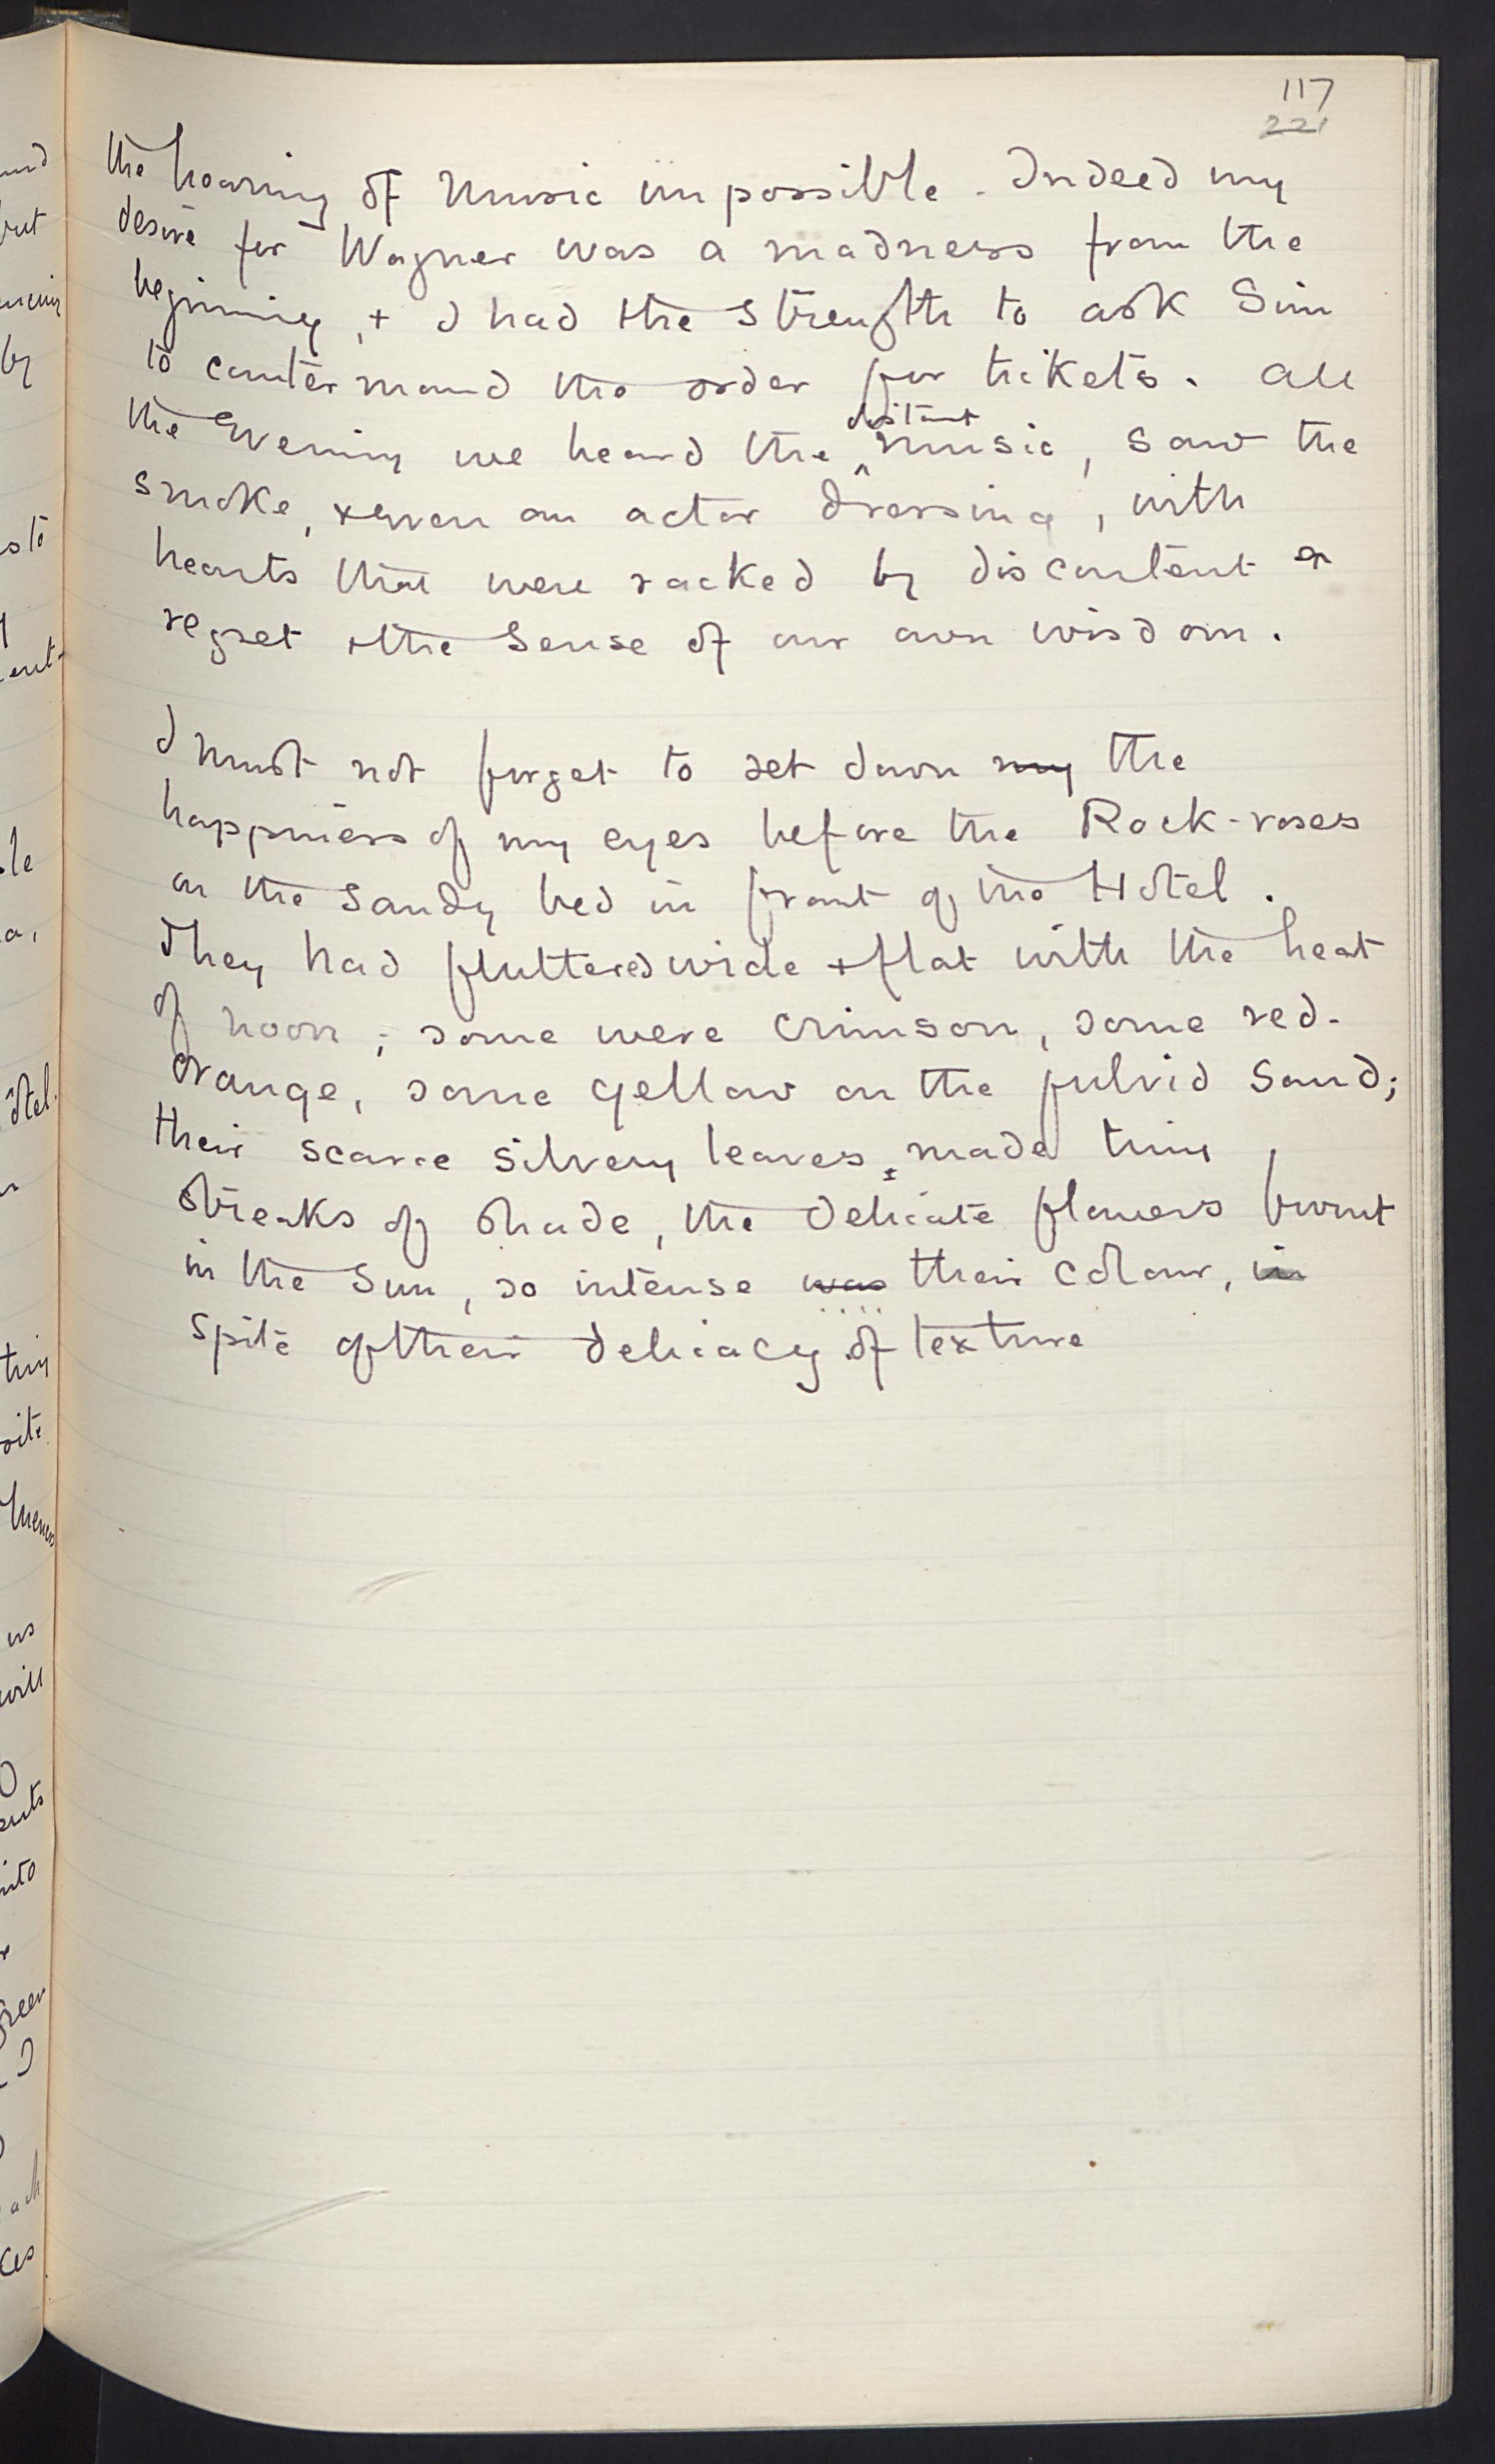 117
221
the hearing of Music impossible. Indeed my
desire for Wagner was a madness from the
beginning, + I had the strength to ask Sim
to countermand the order for tickets. All
distant
the Evening we heard the ^ music, saw the
smoke, + even an actor dressing, with
hearts that were racked by discontent &
regret + the sense of our own wisdom.
I must not forget to set down my the
happiness of my eyes before the Rock-roses
on the sandy bed in front of the Hotel.
They had fluttered wide + flat with the heat
of noon; some were crimson, some red-
orange, some yellow on the fulvid sand;
their scarce silvery leaves made tiny
streaks of shade, the delicate flowers burnt
in the sun, so intense was their colour, in
spite of their delicacy of texture